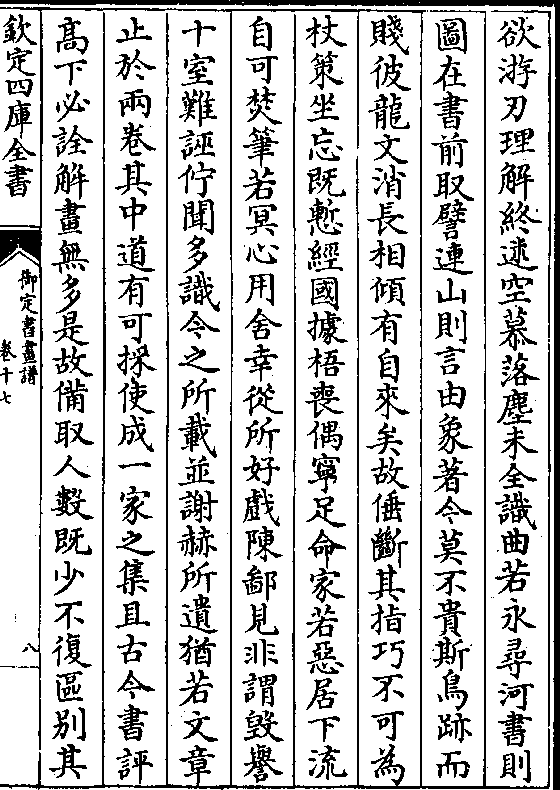 欲游刃理解終迷空慕落塵未全識曲若永尋河書則
圖在書前取譬連山則言由象著今莫不貴斯鳥跡而
賤彼龍文消長相傾有自來矣故倕斷其指巧不可為
杖策坐忘既慙經國據梧喪偶寧足命家若惡居下流
自可焚筆若冥心用舍幸從所好戲陳鄙見非謂毀譽
十室難誣佇聞多識今之所載並謝赫所遺猶若文章
止於兩卷其中道有可採使成一家之集且古今書評
高下必詮解畫無多是故備取人數既少不復區别其
欽定四庫全書
御定書畫譜
卷十七
八